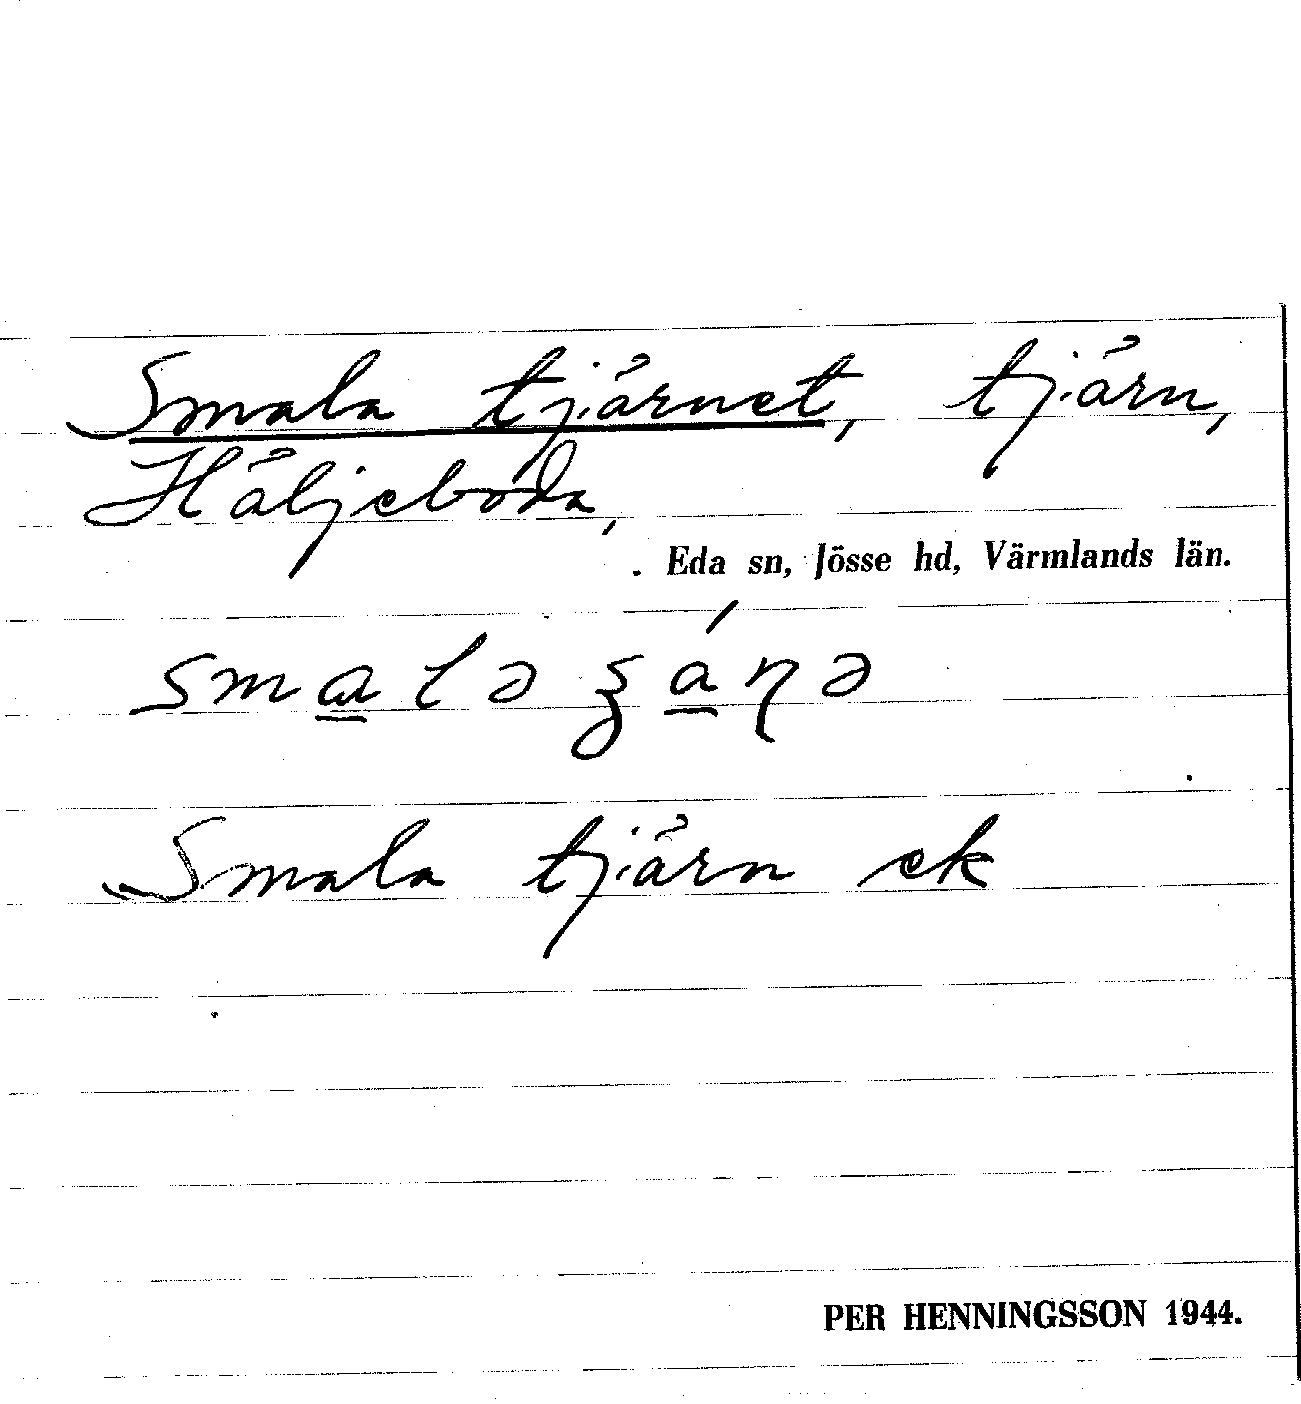 Smala tjärnet, tjärn,
Häljeboda,
Eda sn, Jösse hd, Värmlands län.
Smala tjärn ek
PER HENNINGSSON 1944.